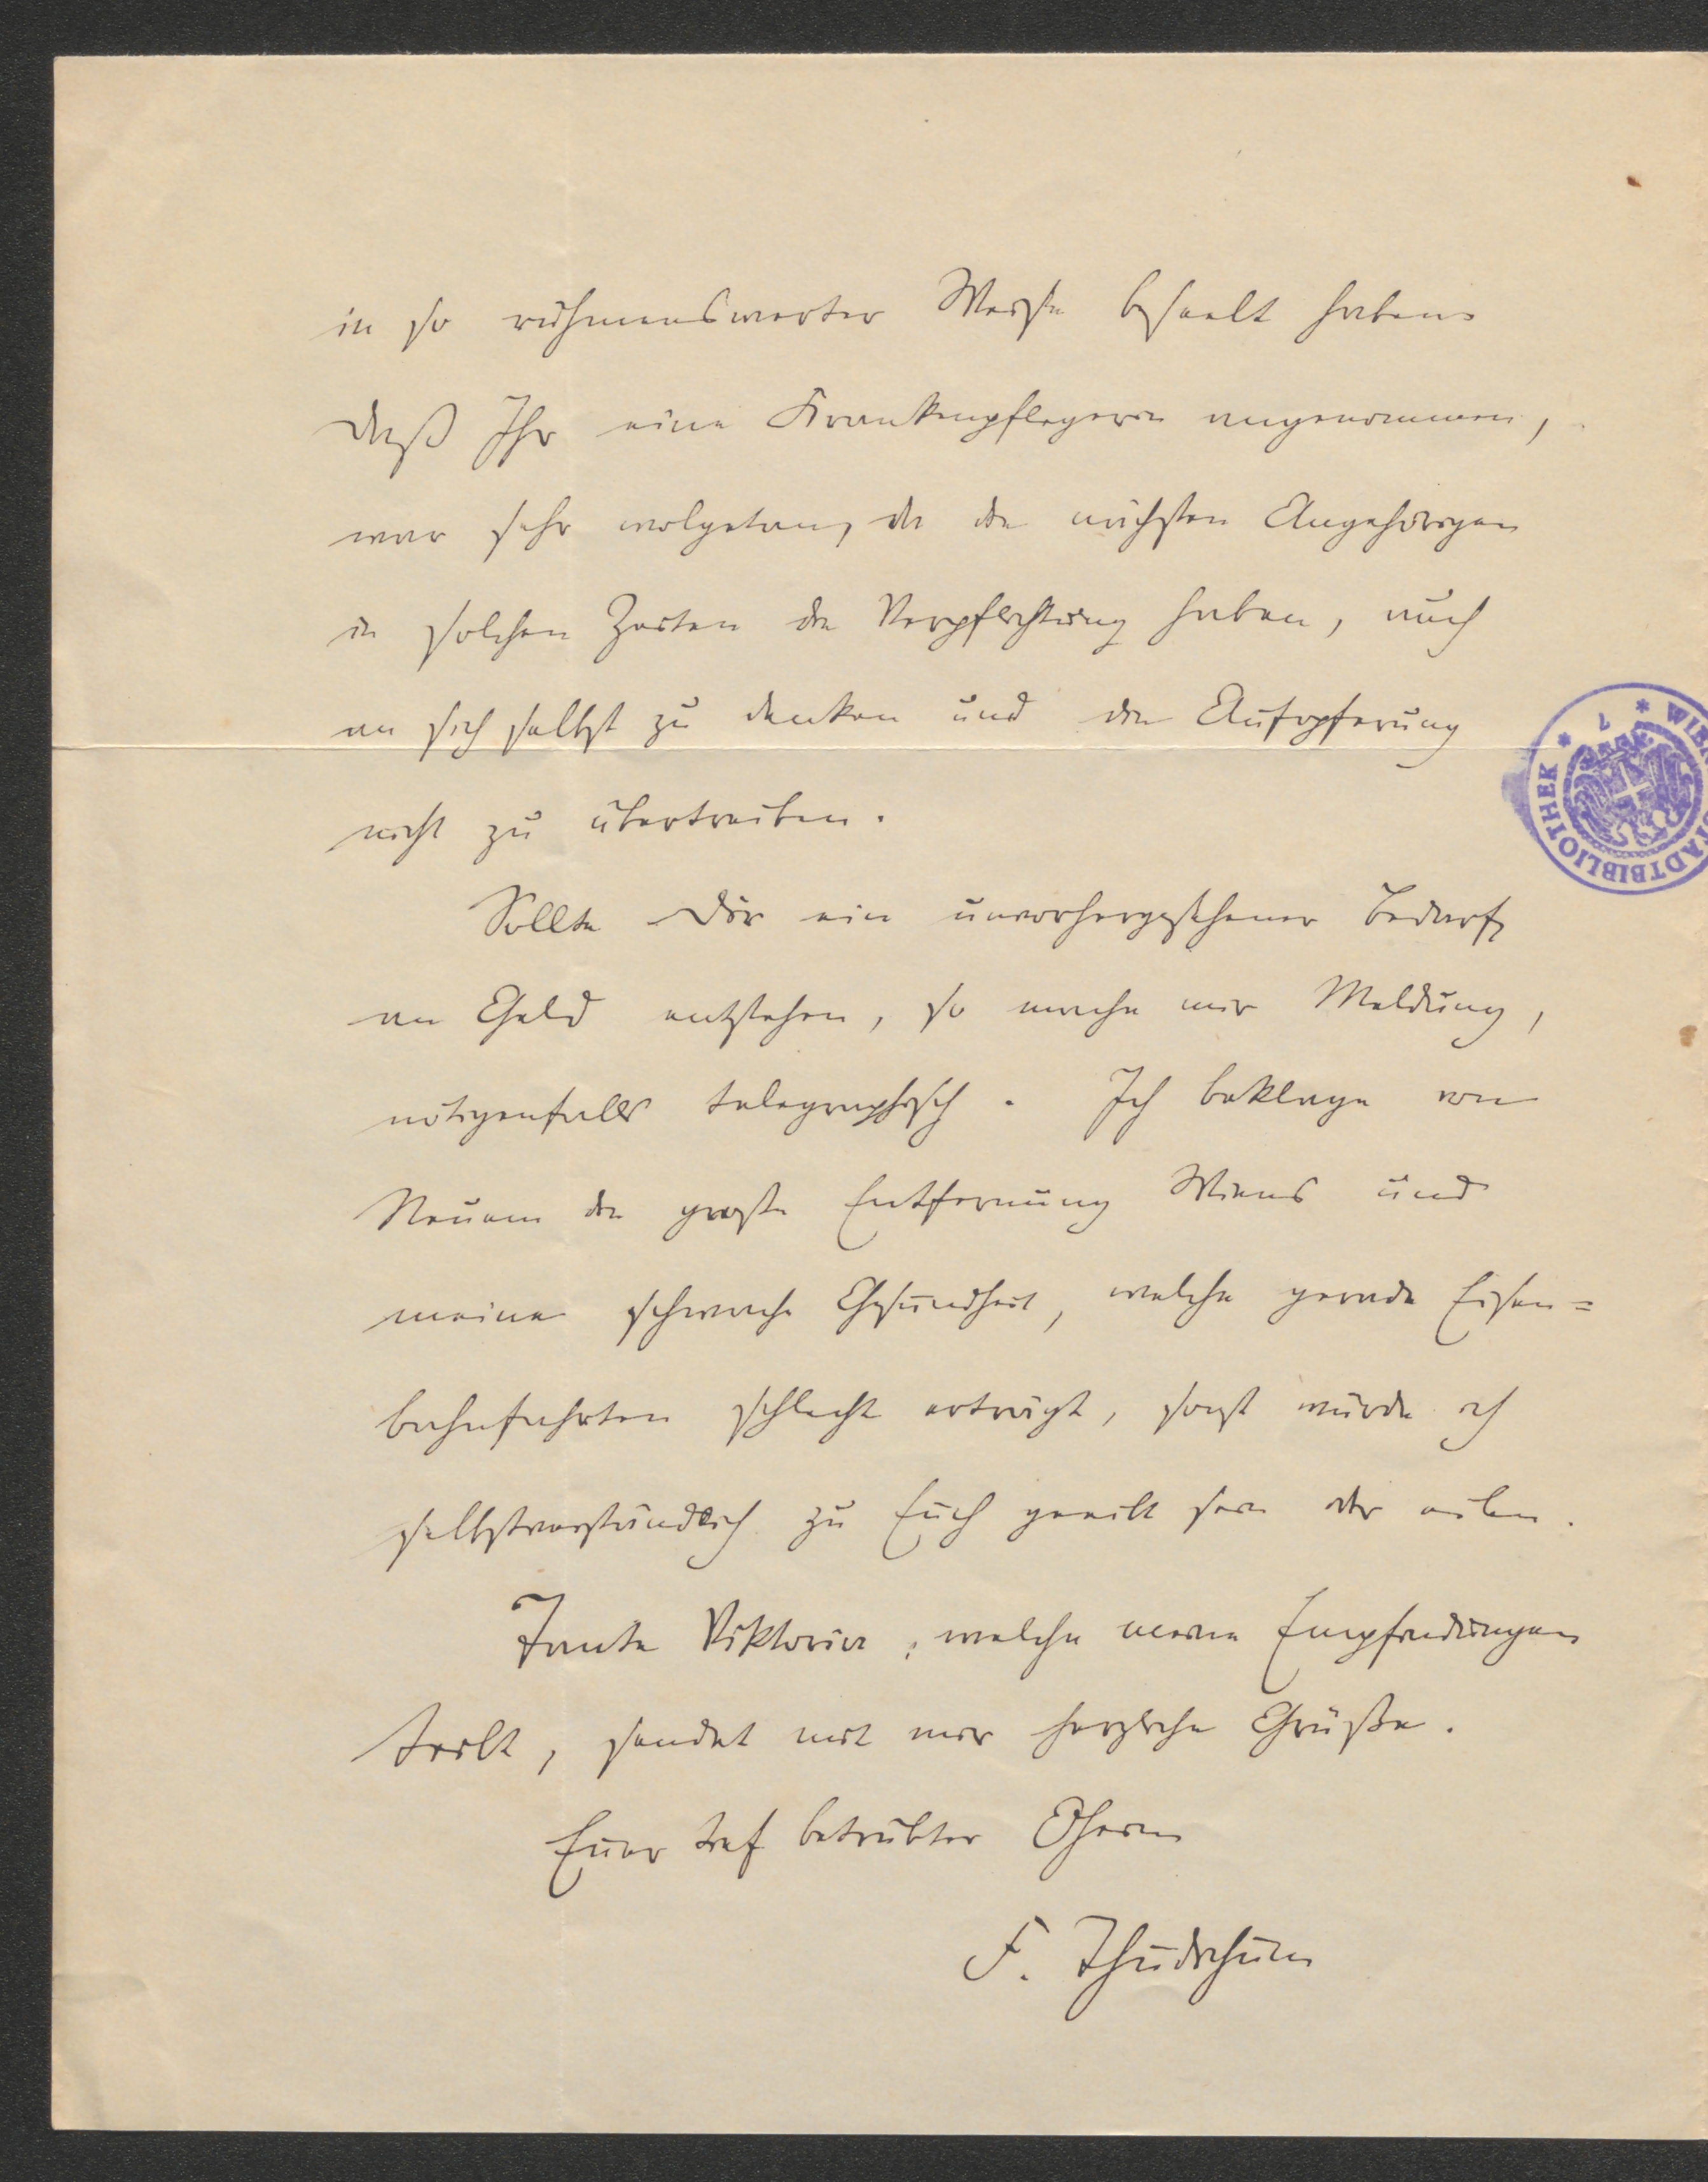 in so rühmenswerter Weise beseelt haben
Daß Ihr eine Krankenpflegerin angenommen,
war sehr wolgetan, da die nächsten Angehörigen
in solchen Zeiten die Verpflichtung haben, auch
an sich selbst zu denken und die Aufopferung
nicht zu übertreiben.
Sollte Dir ein unvorhergesehener Bedarf
an Geld entstehen, so mache mir Meldung,
nötigenfalls telegraphisch. Ich beklage von
Neuem die große Entfernung Wiens und
meine schwache Gesundheit, welche gerade Eisen=
bahnfahrten schlecht erträgt, sonst würde ich
selbstverständlich zu Euch geeilt sein oder eilen.
Tante Viktoria, welche meine Empfindungen
teilt, sendet mit mir herzliche Grüße.
Euer tief betrübter Oheim
F. Thudichum
STADTBIBLIOTHEK * 7 * WIEN